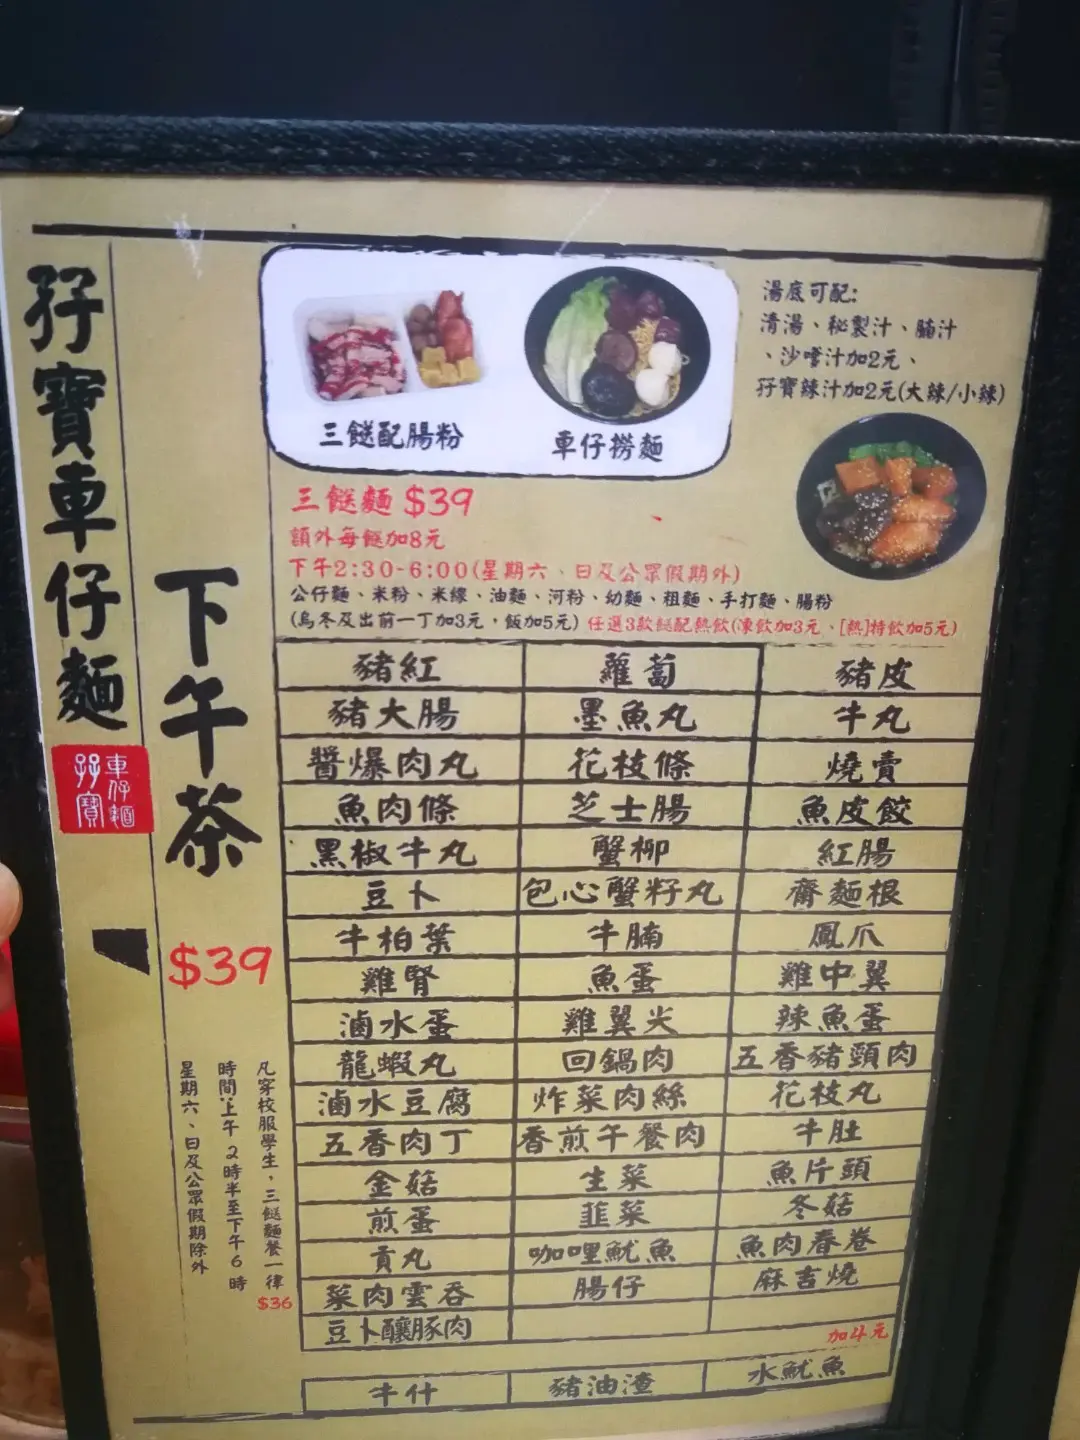 孖寶車仔麵
孖寶
車仔麵
下午茶
$39
凡穿校服學生，三餸麵餐一律$36
時間：上午2時半至下午6時
星期六、日及公眾假期除外
三餸配腸粉
車仔撈麵
湯底可配:
清湯、秘製汁、腩汁
、沙嗲汁加2元、
孖寶辣汁加2元(大辣/小辣)
三餸麵 $39
額外每餸加8元
下午2:30-6:00(星期六、日及公眾假期外)
公仔麵、米粉、米線、油麵、河粉、幼麵、粗麵、手打麵、腸粉
(烏冬及出前一丁加3元，飯加5元) 任選3款餸配熱飲(凍飲加3元、[熱]特飲加5元)
豬紅 蘿蔔 豬皮
豬大腸 墨魚丸 牛丸
醬爆肉丸 花枝條 燒賣
魚肉條 芝士腸 魚皮餃
黑椒牛丸 蟹柳 紅腸
豆卜 包心蟹籽丸 齋麵根
牛柏葉 牛腩 鳳爪
雞腎 魚蛋 雞中翼
滷水蛋 雞翼尖 辣魚蛋
龍蝦丸 回鍋肉 五香豬頸肉
滷水豆腐 炸菜肉絲 花枝丸
五香肉丁 香煎午餐肉 牛肚
金菇 生菜 魚片頭
煎蛋 韮菜 冬菇
貢丸 咖哩魷魚 魚肉春卷
菜肉雲吞 腸仔 麻吉燒
豆卜釀豚肉
加4元
牛什 豬油渣 水魷魚